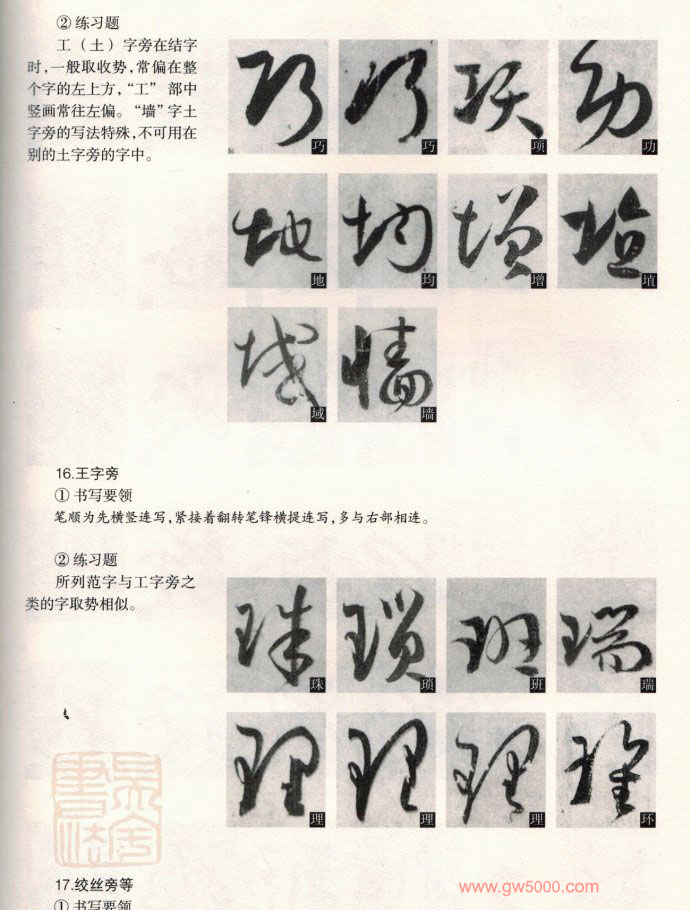 ② 练习题
工（土）字旁在结字
时，一般取收势，常偏在整
个字的左上方，“工” 部中
竖画常往左偏。“墙”字土
字旁的写法特殊，不可用在
别的土字旁的字中。
巧 巧 项 功
地 均 增 埴
域 墙
16.王字旁
① 书写要领
笔顺为先横竖连写，紧接着翻转笔锋横提连写，多与右部相连。
② 练习题
所列范字与工字旁之
类的字取势相似。
珠 琐 班 瑞
理 理 理 环
17.绞丝旁等
① 书写要领
www.gw5000.com